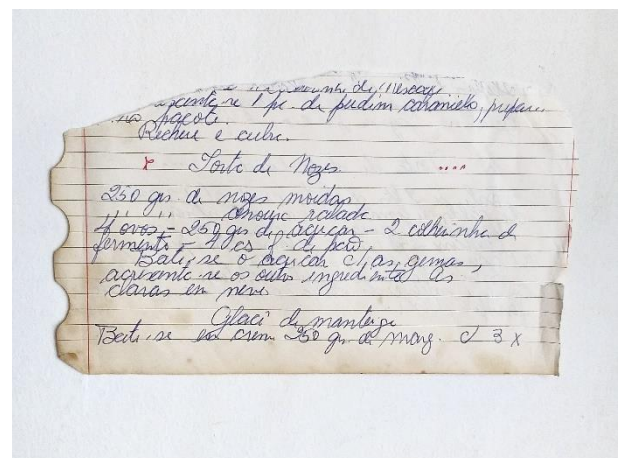 de Nescau
acrescenta-se 1 pc. de pudim caramello, prepare
no pacote.
Rechear e cubra.
x Torta de Nozes.
250 grs. de nozes moidas
" " " ralada
4 ovos - 250 grs de açucar - 2 colherinha de
fermento - 4 cs de
Bate-se o açucar c/ as gemas,
acresanta-se os outros ingredientes as
claras em neve
Glacê de manteiga
Bate-se em creme 250 grs de marg. c/ 3 x